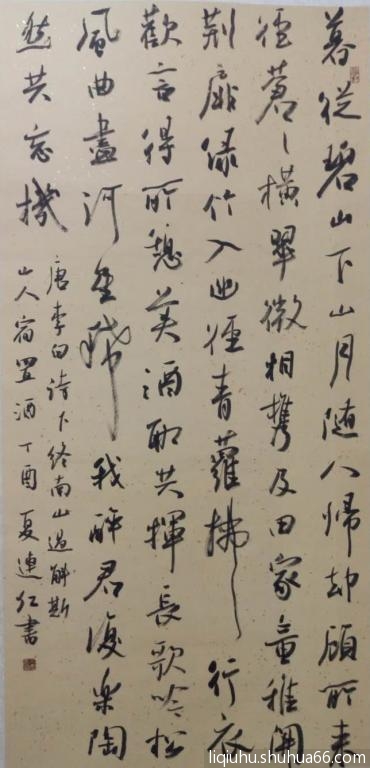 暮从碧山下山月随人归却顾所来
径苍〻横翠微相携及田家童稚开
荆扉绿竹入幽径青萝拂行衣
歡言得所憩美酒聊共揮長歌吟松
風曲盡河星稀我醉君復樂陶
然共忘機
唐李白詩下終南山過斛斯
山人宿置酒丁酉夏連紅書
liqiuhu.shuhua66.com